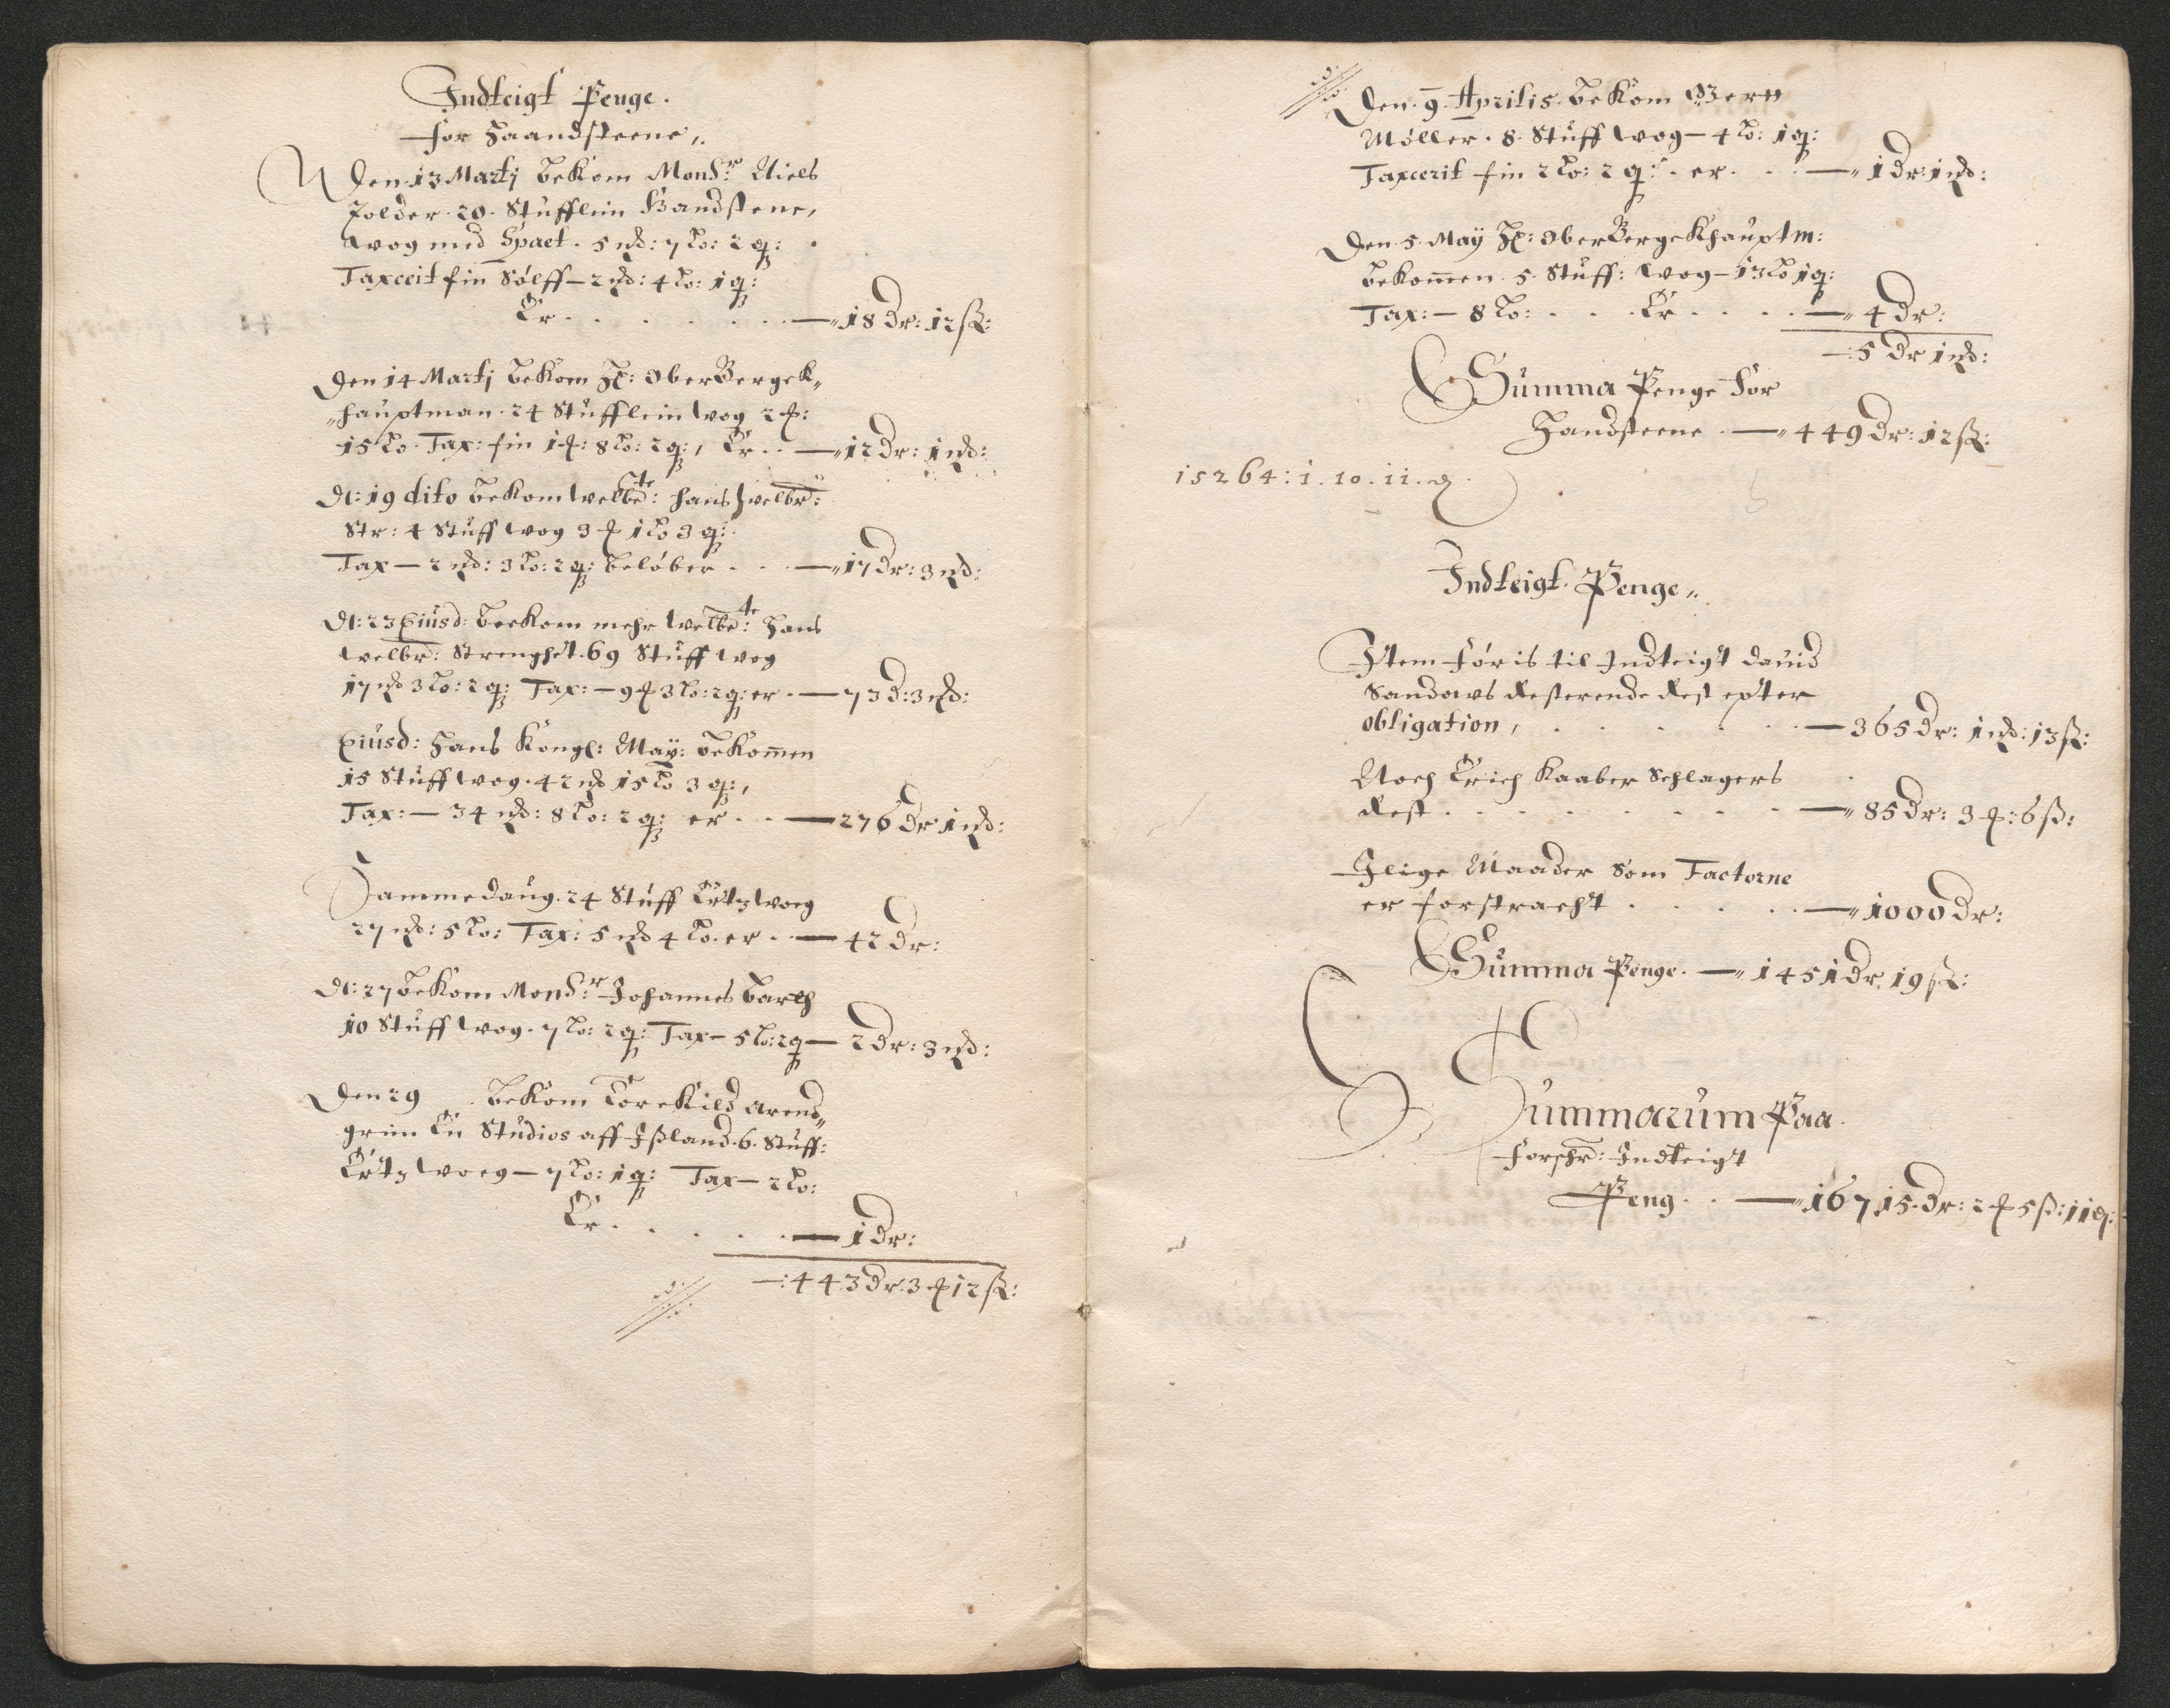 Indteigt Penge.
for Haandsteene,.
Den 13 Martj bekom Monsr Niels
Tolder 20. Stufflein Handstene,
wog med Spaet. 5 m̃: 7 Lo: 2 q:
Taxceit fin Sölff - 2 m̃: 4 Lo: 1 q:
Er . . . . . . . — 18 Dr: 12 ß:
Den 14 Martj bekom H: OberBergek,,
,,hauptman. 24 Stufflein wog 2 m̃:
15 Lo. Tax: fin 1 m̃: 8 Lo: 2 q:, Er . . — 12 Dr: 1 m̃:
A: 19 dito bekom welbte: hans welbr:
Str: 4 Stuff wog 3 m̃ 1 Lo 3 q:
Tax — 2 m̃: 3 Lo: 2 q: belöber . . . — 17 Dr: 3 m̃:
A: 23 Eiusd: beekom mehr welbte: Hans
welbr: Strenghet. 69 Stuff wog
17 m̃ 3 Lo: 2 q: Tax: — 9 m̃ 3 Lo: 2 q: er . — 73 d: 3 m̃:
Eiusd: Hans Kongl: May: bekomen
15 Stuff wog. 42 m̃ 15 Lo 3 q:,
Tax: — 34 m̃: 8 Lo: 2 q: er . . — 276 Dr 1 m̃:
Sammedaug. 24 Stuff Ertz woeg
27 m̃: 5 Lo: Tax: 5 m̃ 4 Lo. er . . — 42 Dr:
A: 27 bekom Monsr Johannes Barth
10 Stuff wog. 7 Lo: 2 q: Tax — 5 Lo: 2 q — 2 Dr: 3 m̃:
Den 29 . bekom Torekild Arend,,
grim En Studios aff Ißland. 6. Stuff:
Ertz woeg — 7 Lo: 1 q: Tax — 2 Lo:
Er . . . . . — 1 Dr:
—: 443 Dr 3 m̃ 12 ß:
Den. 9. Aprilis. bekom Gert
Möller. 8. Stuff wog — 4 Lo: 1 q:
Taxcerit fin 2 Lo: 2 q: . er . . . — 1 Dr 1 m̃:
Den 5 May H: OberBergekhauptm:
bekomen. 5. Stuff: wog — 13 Lo 1 q:
Tax: — 8 Lo: . . . Er . . . . — 4 Dr:
—: 5 Dr 1 m̃:
Summa Penge For
Handsteene . — 449 Dr: 12 ß:
15264: 1. 10. 11. d
Indteigt. Penge,,
Item föris til Indteigt dauid
Sandows Resterende Rest epter
obligation, . . . . . . — 365 Dr: 1 m̃: 13 ß:
Noch Erich Kaaber Schlagers
Rest . . . . . . . . . — 85 Dr: 3 m̃: 6 ß:
Jlige Maader Som Factorne
er forstracht . . . . . — 1000 Dr:
Summa Penge. — 1451 Dr 19 ß:
Summarum Paa.
Forschr: Indteigt
Peng . . — 16715 Dr: 2 m̃ 5 ß: 11 d: